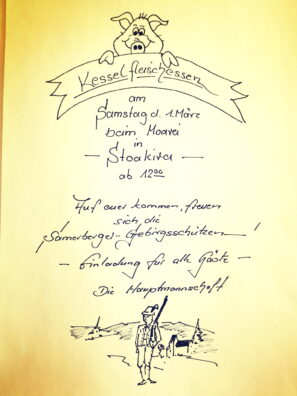 Kesselfleischessen
am
Samstag d. 1. März
beim Moarei
in
- Stoakira -
ab 12 00
Auf euer kommen, freuen
sich die
Samerberger-Gebirgsschützen!
- Einladung für alle Gäste -
Die Hauptmannschaft